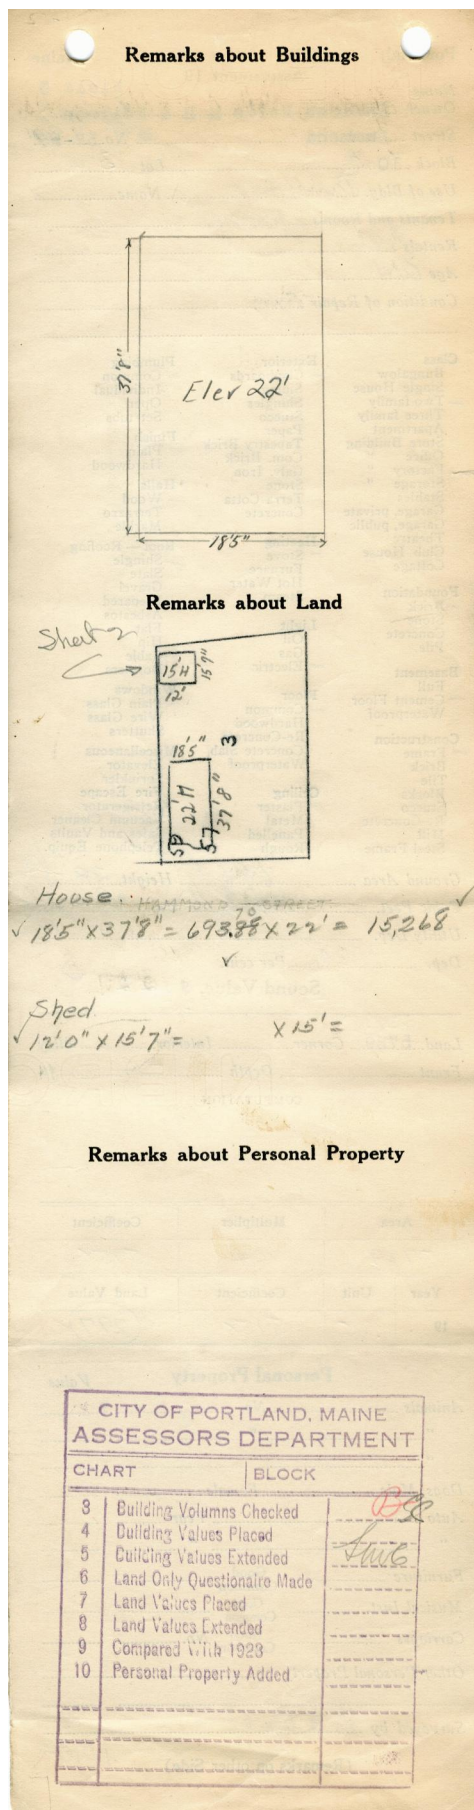 Remarks about Buildings
37'8"
Elev 22'
18'5"
Remarks about Land
Shed
15'H
15'7"
12'
18'5"
3
22'H
37'8"
57
House.
HAMMOND STREET
18'5" X 37'8" = 693. X 22' = 15,268
Shed
12'0" X 15'7" = X 15' =
Remarks about Personal Property
CITY OF PORTLAND, MAINE
ASSESSORS DEPARTMENT
CHART BLOCK
3 Building Volumns Checked
4 Building Values Placed
5 Building Values Extended
6 Land Only Questionaire Made
7 Land Values Placed
8 Land Values Extended
9 Compared With 1923
10 Personal Property Added